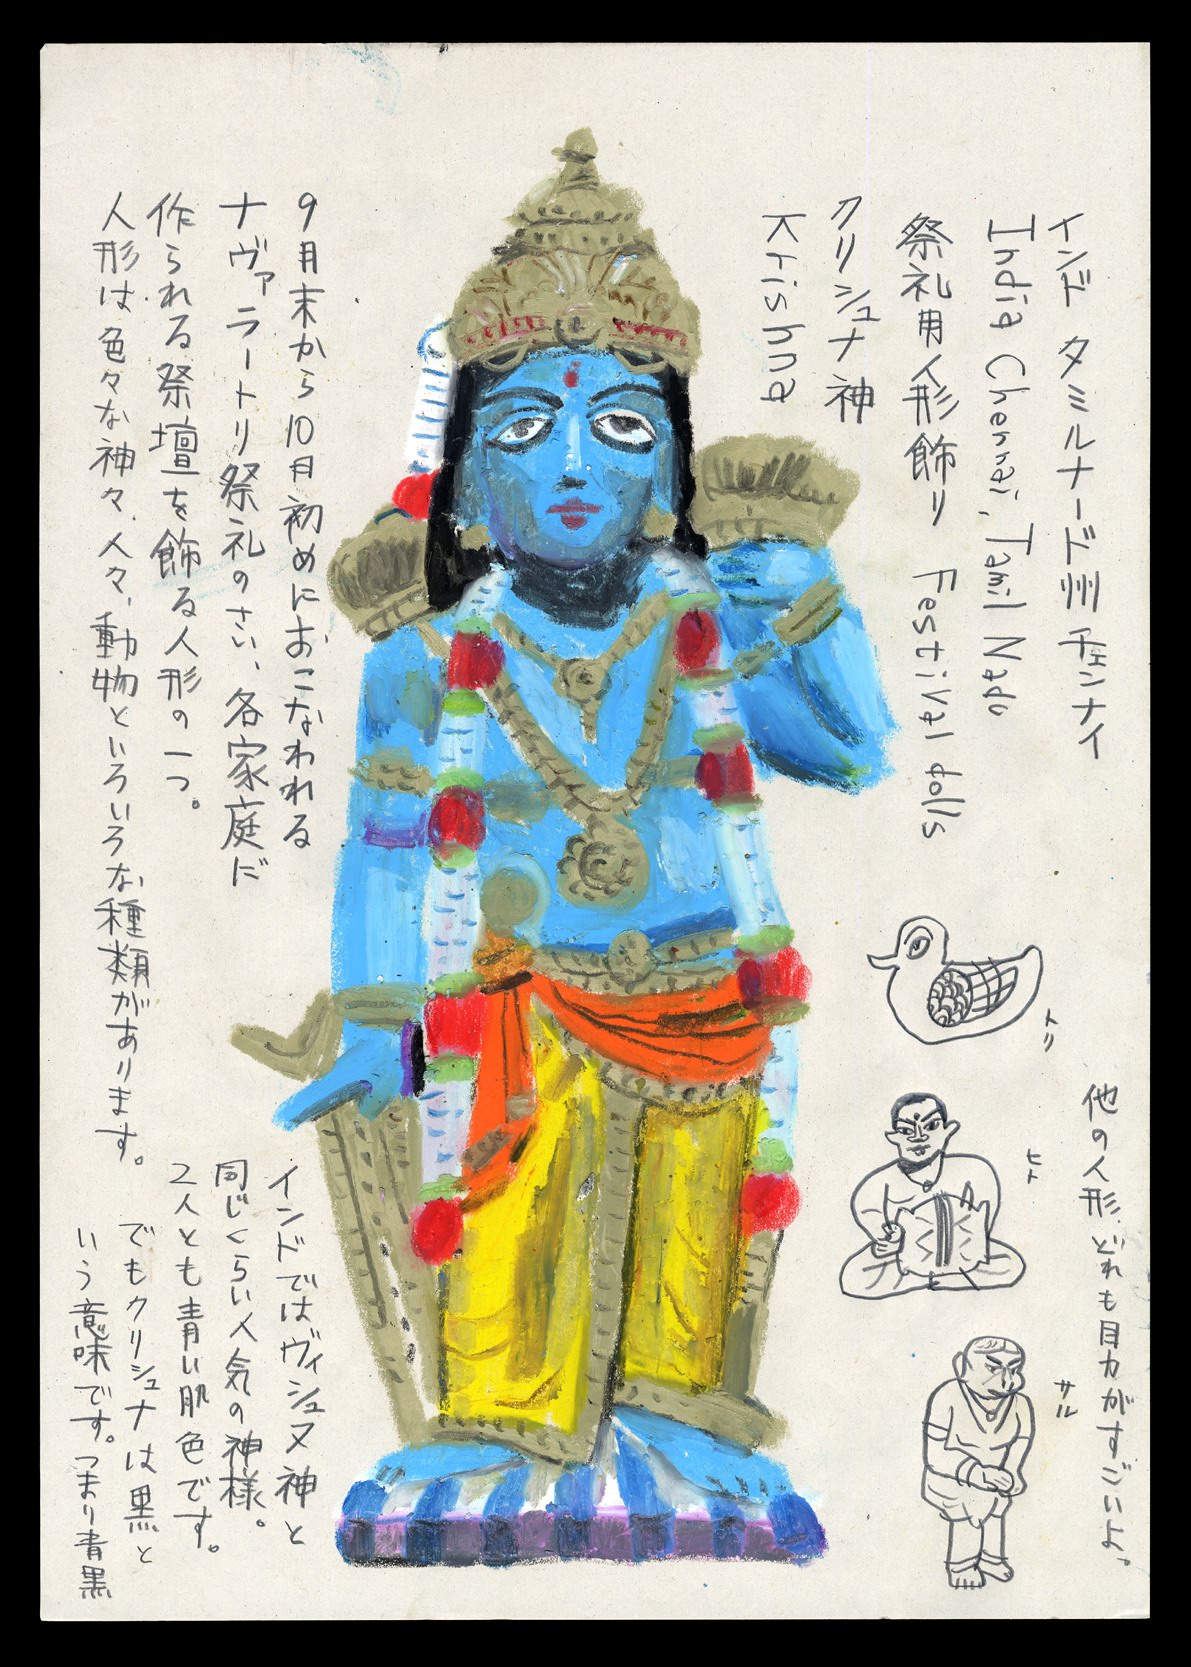 インド タミルナード州 チェンナイ
India Chennai, Tamil Nado
祭礼用人形飾り Festival dolls
クリシュナ神
Krishna
9月末から10月初めにおこなわれる
ナヴァラートリ祭礼のさい、各家庭だ
作られる祭壇を飾る人形の一つ。
人形は色々な神々、人々、動物といろいろな種類があります。
トリ
ヒト
サル
他の人形、どれも目力がすごいよ。
インドではヴィシュヌ神と
同じくらい人気の神様。
2人とも青い肌色です。
でもクリシュナは黒と
いう意味です。つまり青黒